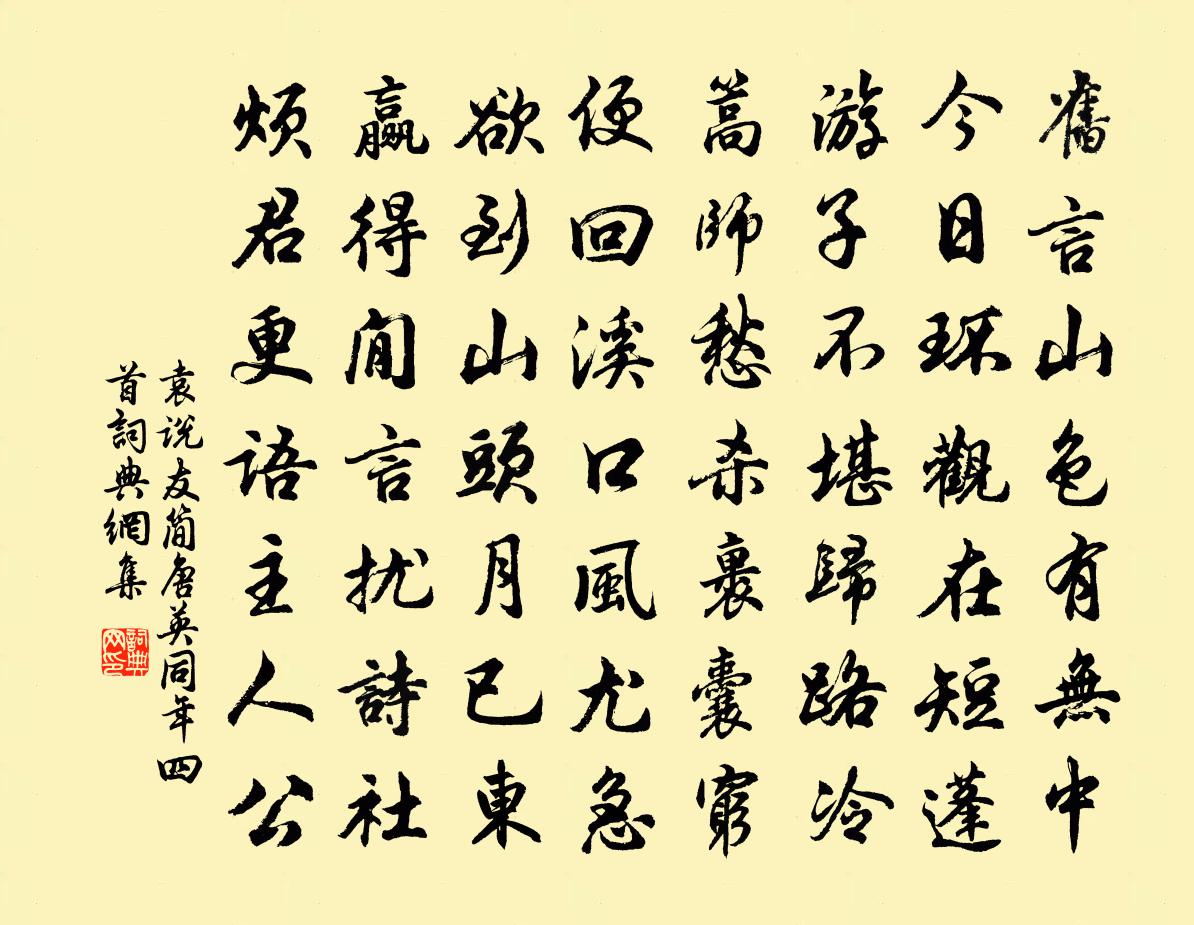 舊言山色有無中
今日環觀在短蓬
游子不堪歸路冷
蒿師愁杀裹囊窮
便回溪口風尤急
欲到山頭月已東
贏得閒言扰詩社
煩君更語主人公
袁说友简唐英同年四
首詞典網集
詞典网印